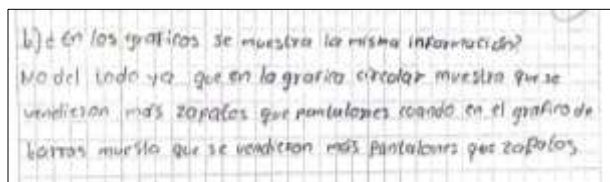 b) ¿ En los graficos se muestra la misma información?
No del todo ya que en la grafica circolar muestra que se
vendieron más zapatos que pantalones cuando en el grafico de
barras muestla que se vendieron más pantalones que zapatos.